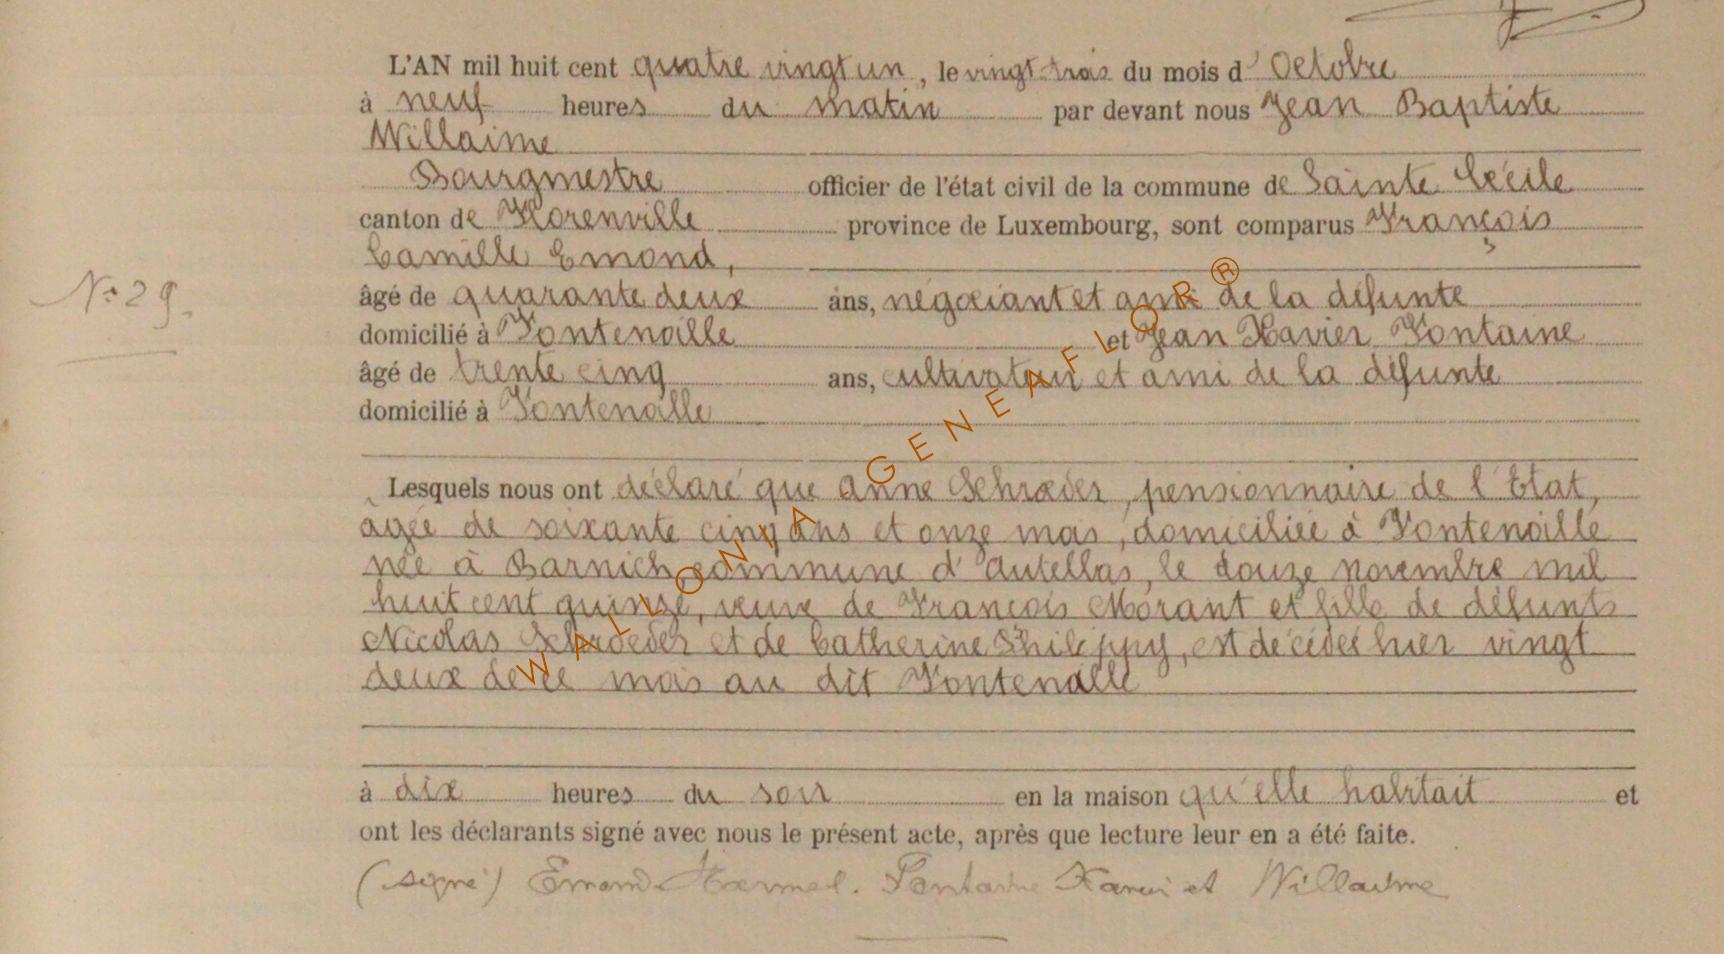 L'AN mil huit cent quatre vingt un, le vingt trois du mois d'Octobre
à neuf heures du matin par devant nous Jean Baptiste
Willaime
Bourgmestre officier de l'état civil de la commune de Sainte Cécile
canton de Florenville province de Luxembourg, sont comparus François
Camille Emond,
N° 29.
âgé de quarante deux ans, négociant et ami de la défunte
domicilié à Fontenoille et Jean Xavier Fontaine
âgé de trente cinq ans, cultivateur et ami de la défunte
domicilié à Fontenoille
Lesquels nous ont déclaré que Anne Schrœder, pensionnaire de l'Etat,
âgée de soixante cinq ans et onze mois, domiciliée à Fontenoille
née à Barnich commune d'Autelbas, le douze novembre mil
huit cent quinze, veuve de François Morant et fille de défunts
Nicolas Schroeder et de Catherine Philippy, est décédée hier vingt
deux de ce mois au dit Fontenoille
à dix heures du soir en la maison qu'elle habitait et
ont les déclarants signé avec nous le présent acte, après que lecture leur en a été faite.
(signé) Emond. Fontaine Xavier et Willaime
WALLONIA GENEAFLOR ®